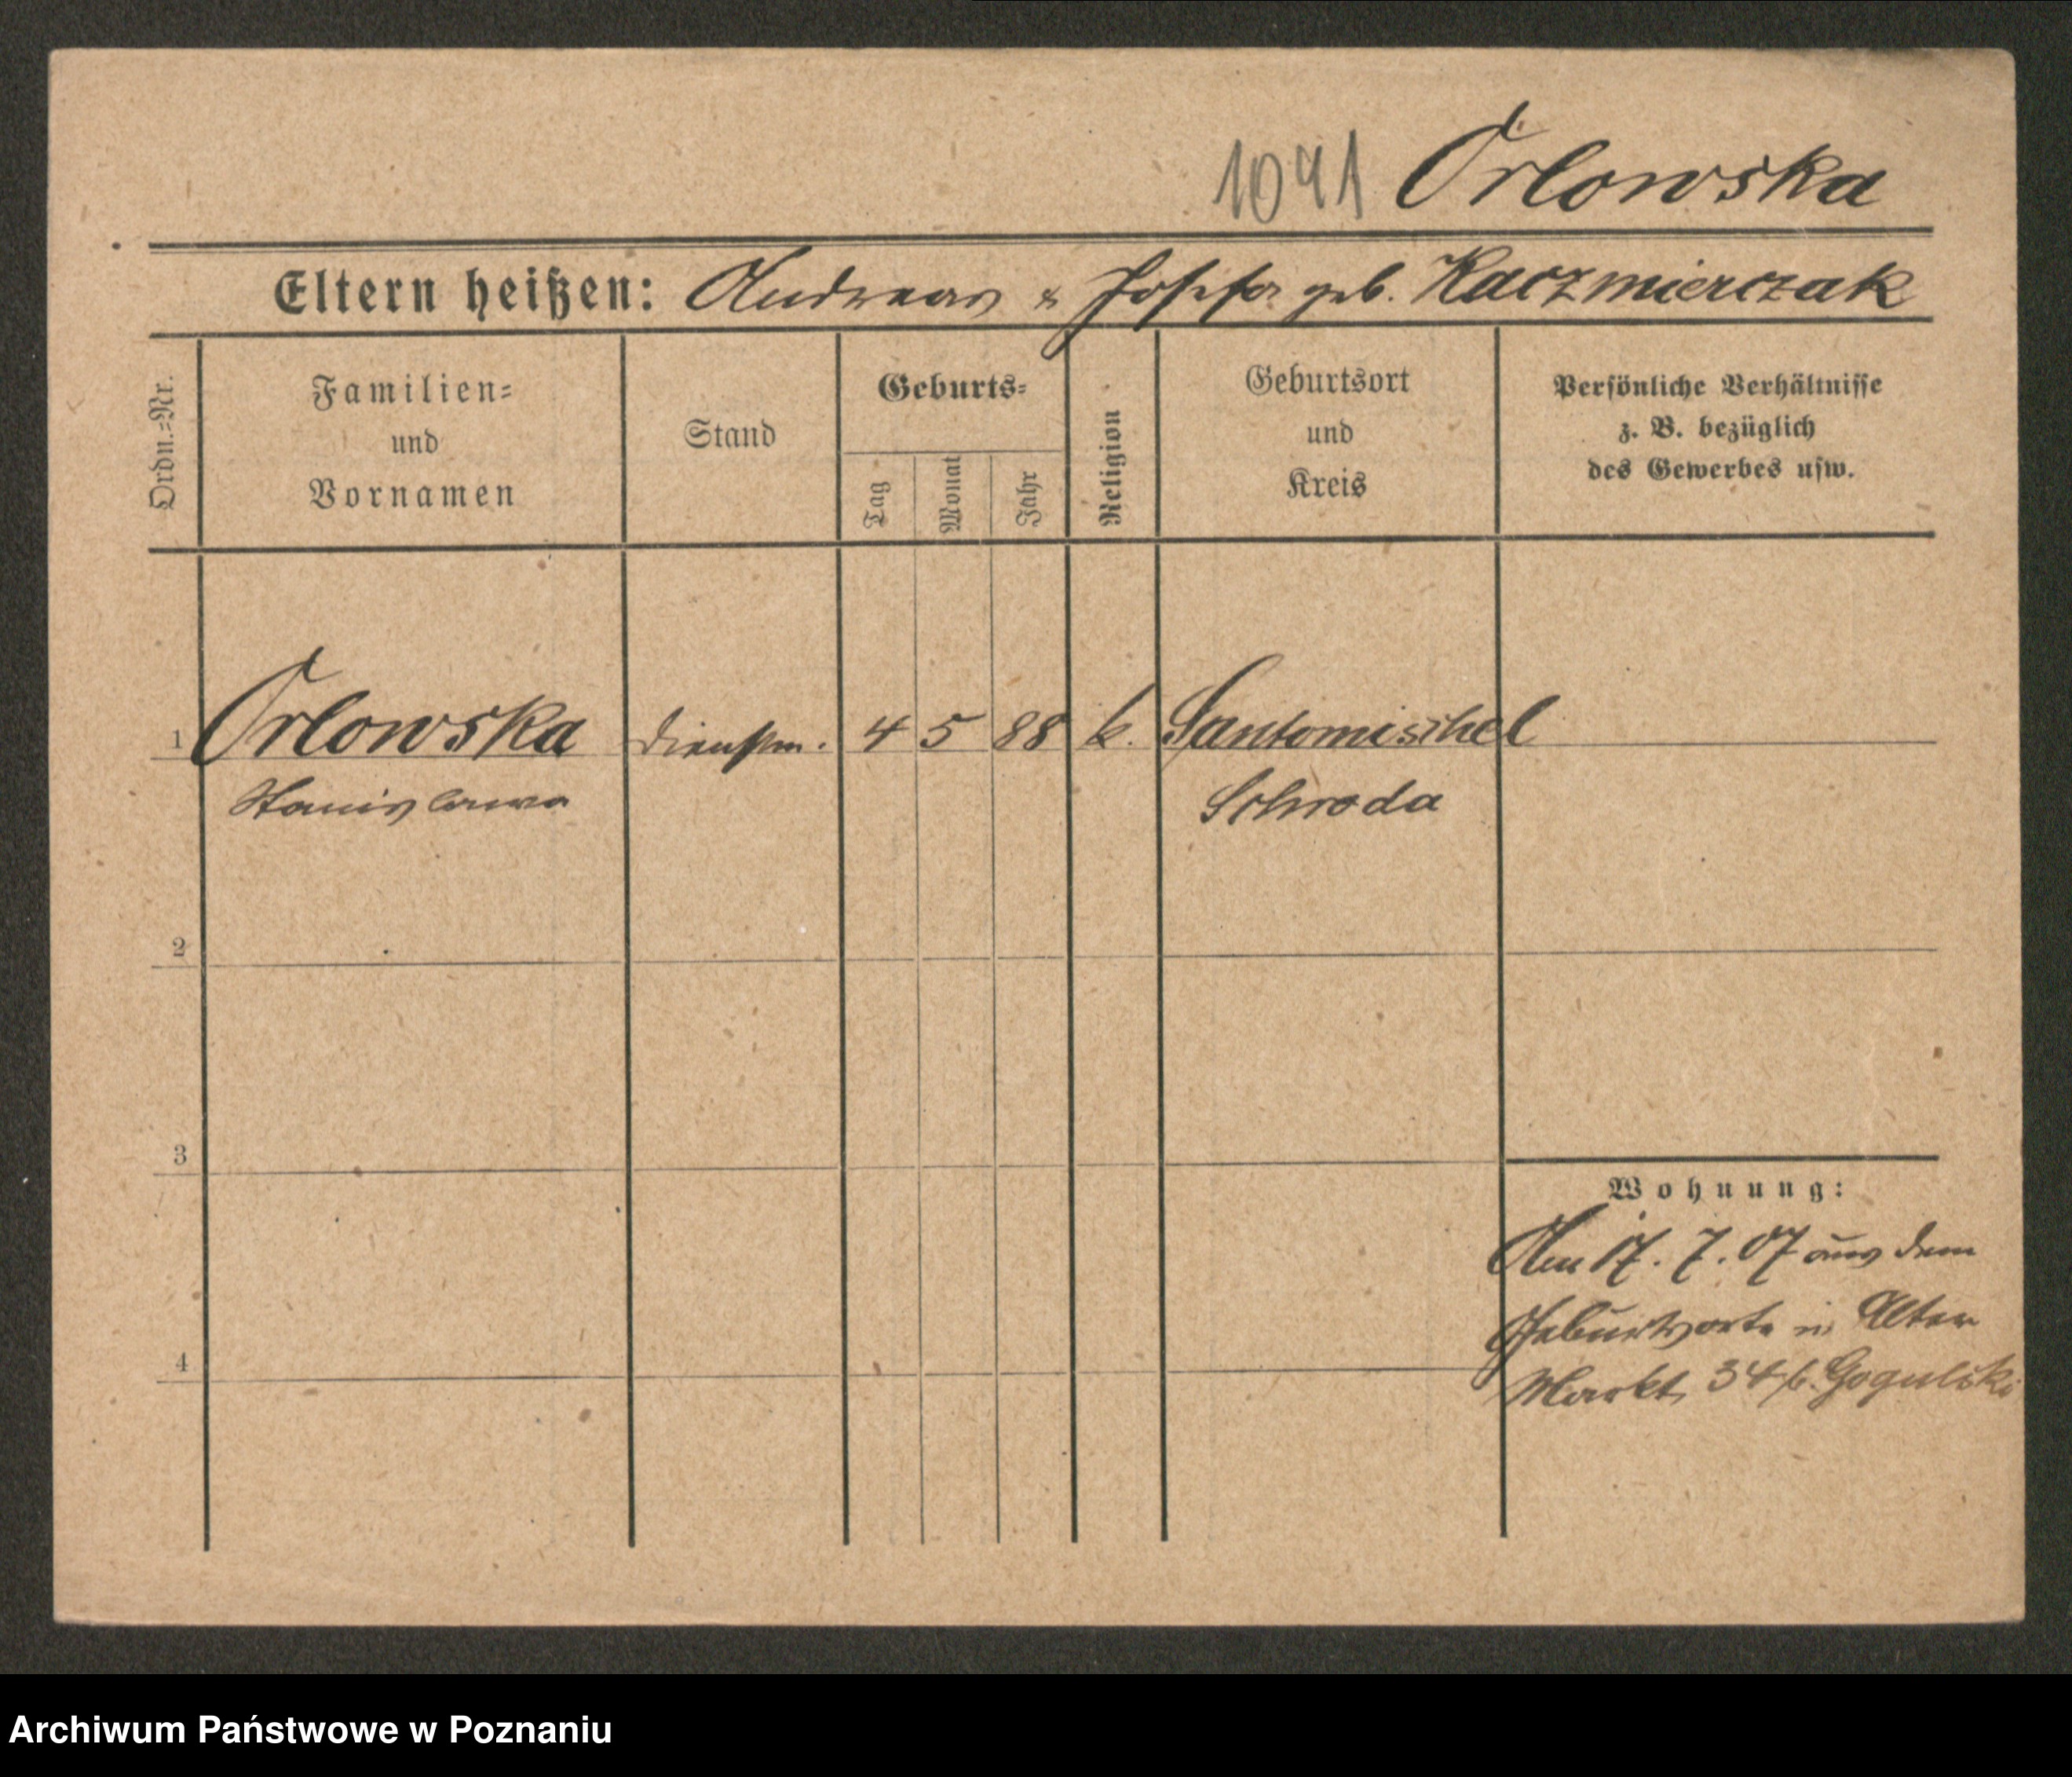 1041 Orlowska
Eltern heißen: Andreas & Josefa geb. Kaczmierczak
Ordn.=Nr.
Familien=
und
Vornamen
Stand
Geburts=
Tag
Monat
Jahr
Religion
Geburtsort
und
Kreis
Persönliche Verhältnisse
z. B. bezüglich
des Gewerbes usw.
1 Orlowska Dienstm. 4 5 88 k. Santomischel
Stanislawa Schroda
2
3
Wohnung:
Am 17. 7. 07 aus dem
Geburtsorte n. Alter
4
Markt 34 b. Gogulski
Archiwum Państwowe w Poznaniu